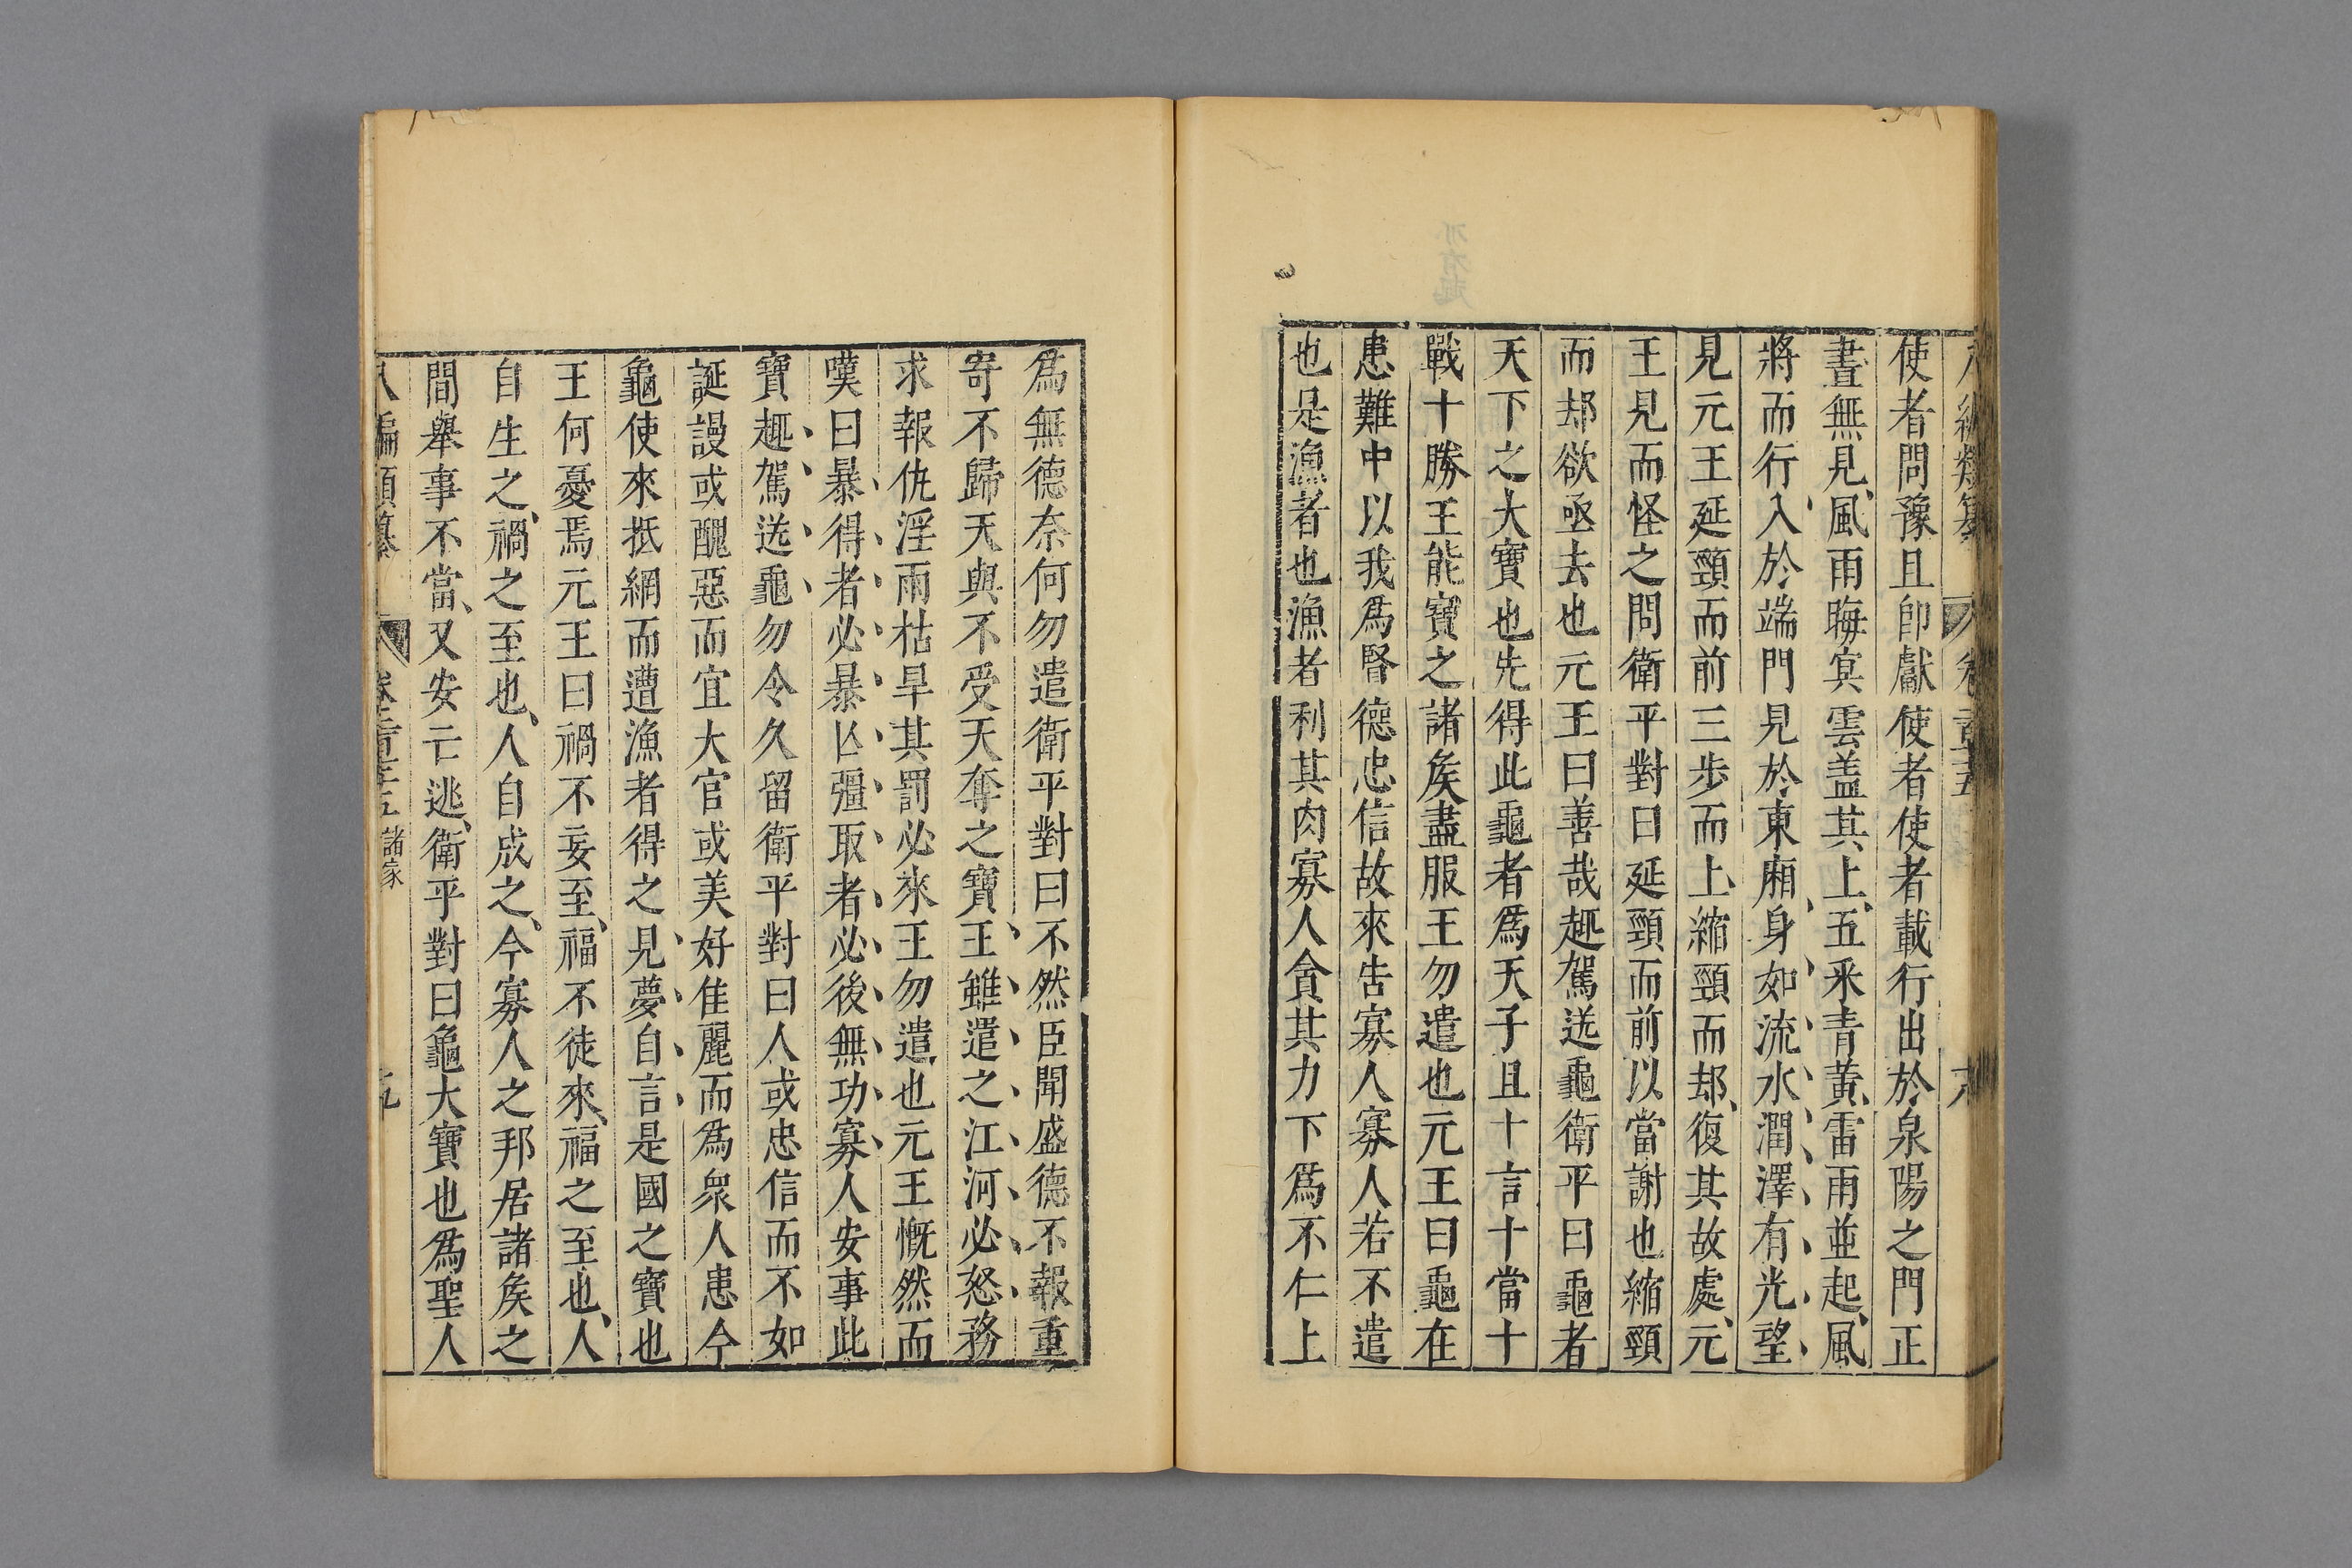 使者問豫且卽獻使者使者載行出於泉陽之門正
晝無見風雨晦冥雲盖其上五釆青黃雷雨並起風
將而行入於端門見於東廂身如流水潤澤有光望
見元王延頸而前三步而上縮頸而却復其故處元
王見而怪之問衛平對曰延頸而前以當謝也縮頸
而却欲亟去也元王曰善哉趣駕送龜衛平曰龜者
天下之大寶也先得此龜者爲天子且十言十當十
戰十勝王能寶之諸矦盡服王勿遣也元王曰龜在
患難中以我爲賢德忠信故來告寡人寡人若不遣
也是漁者也漁者利其肉寡人貪其力下爲不仁上
爲無德奈何勿遣衛平對曰不然臣聞盛德不報重
寄不歸天與不受天奪之寶王雖遣之江河必怒務
求報仇淫雨枯旱其罰必來王勿遣也元王慨然而
嘆曰暴得者必暴亾彊取者必後無功寡人安事此
寶趣駕送龜勿令久留衛平對曰人或忠信而不如
誕謾或醜惡而宜大官或美好佳麗而爲衆人患今
龜使來抵網而遭漁者得之見夢自言是國之寶也
王何憂焉元王曰禍不妄至福不徒來福之至也人
自生之禍之至也人自成之今寡人之邦居諸矦之
間舉事不當又安亡逃衛平對曰龜大寶也爲聖人
八編類纂 卷 諸家